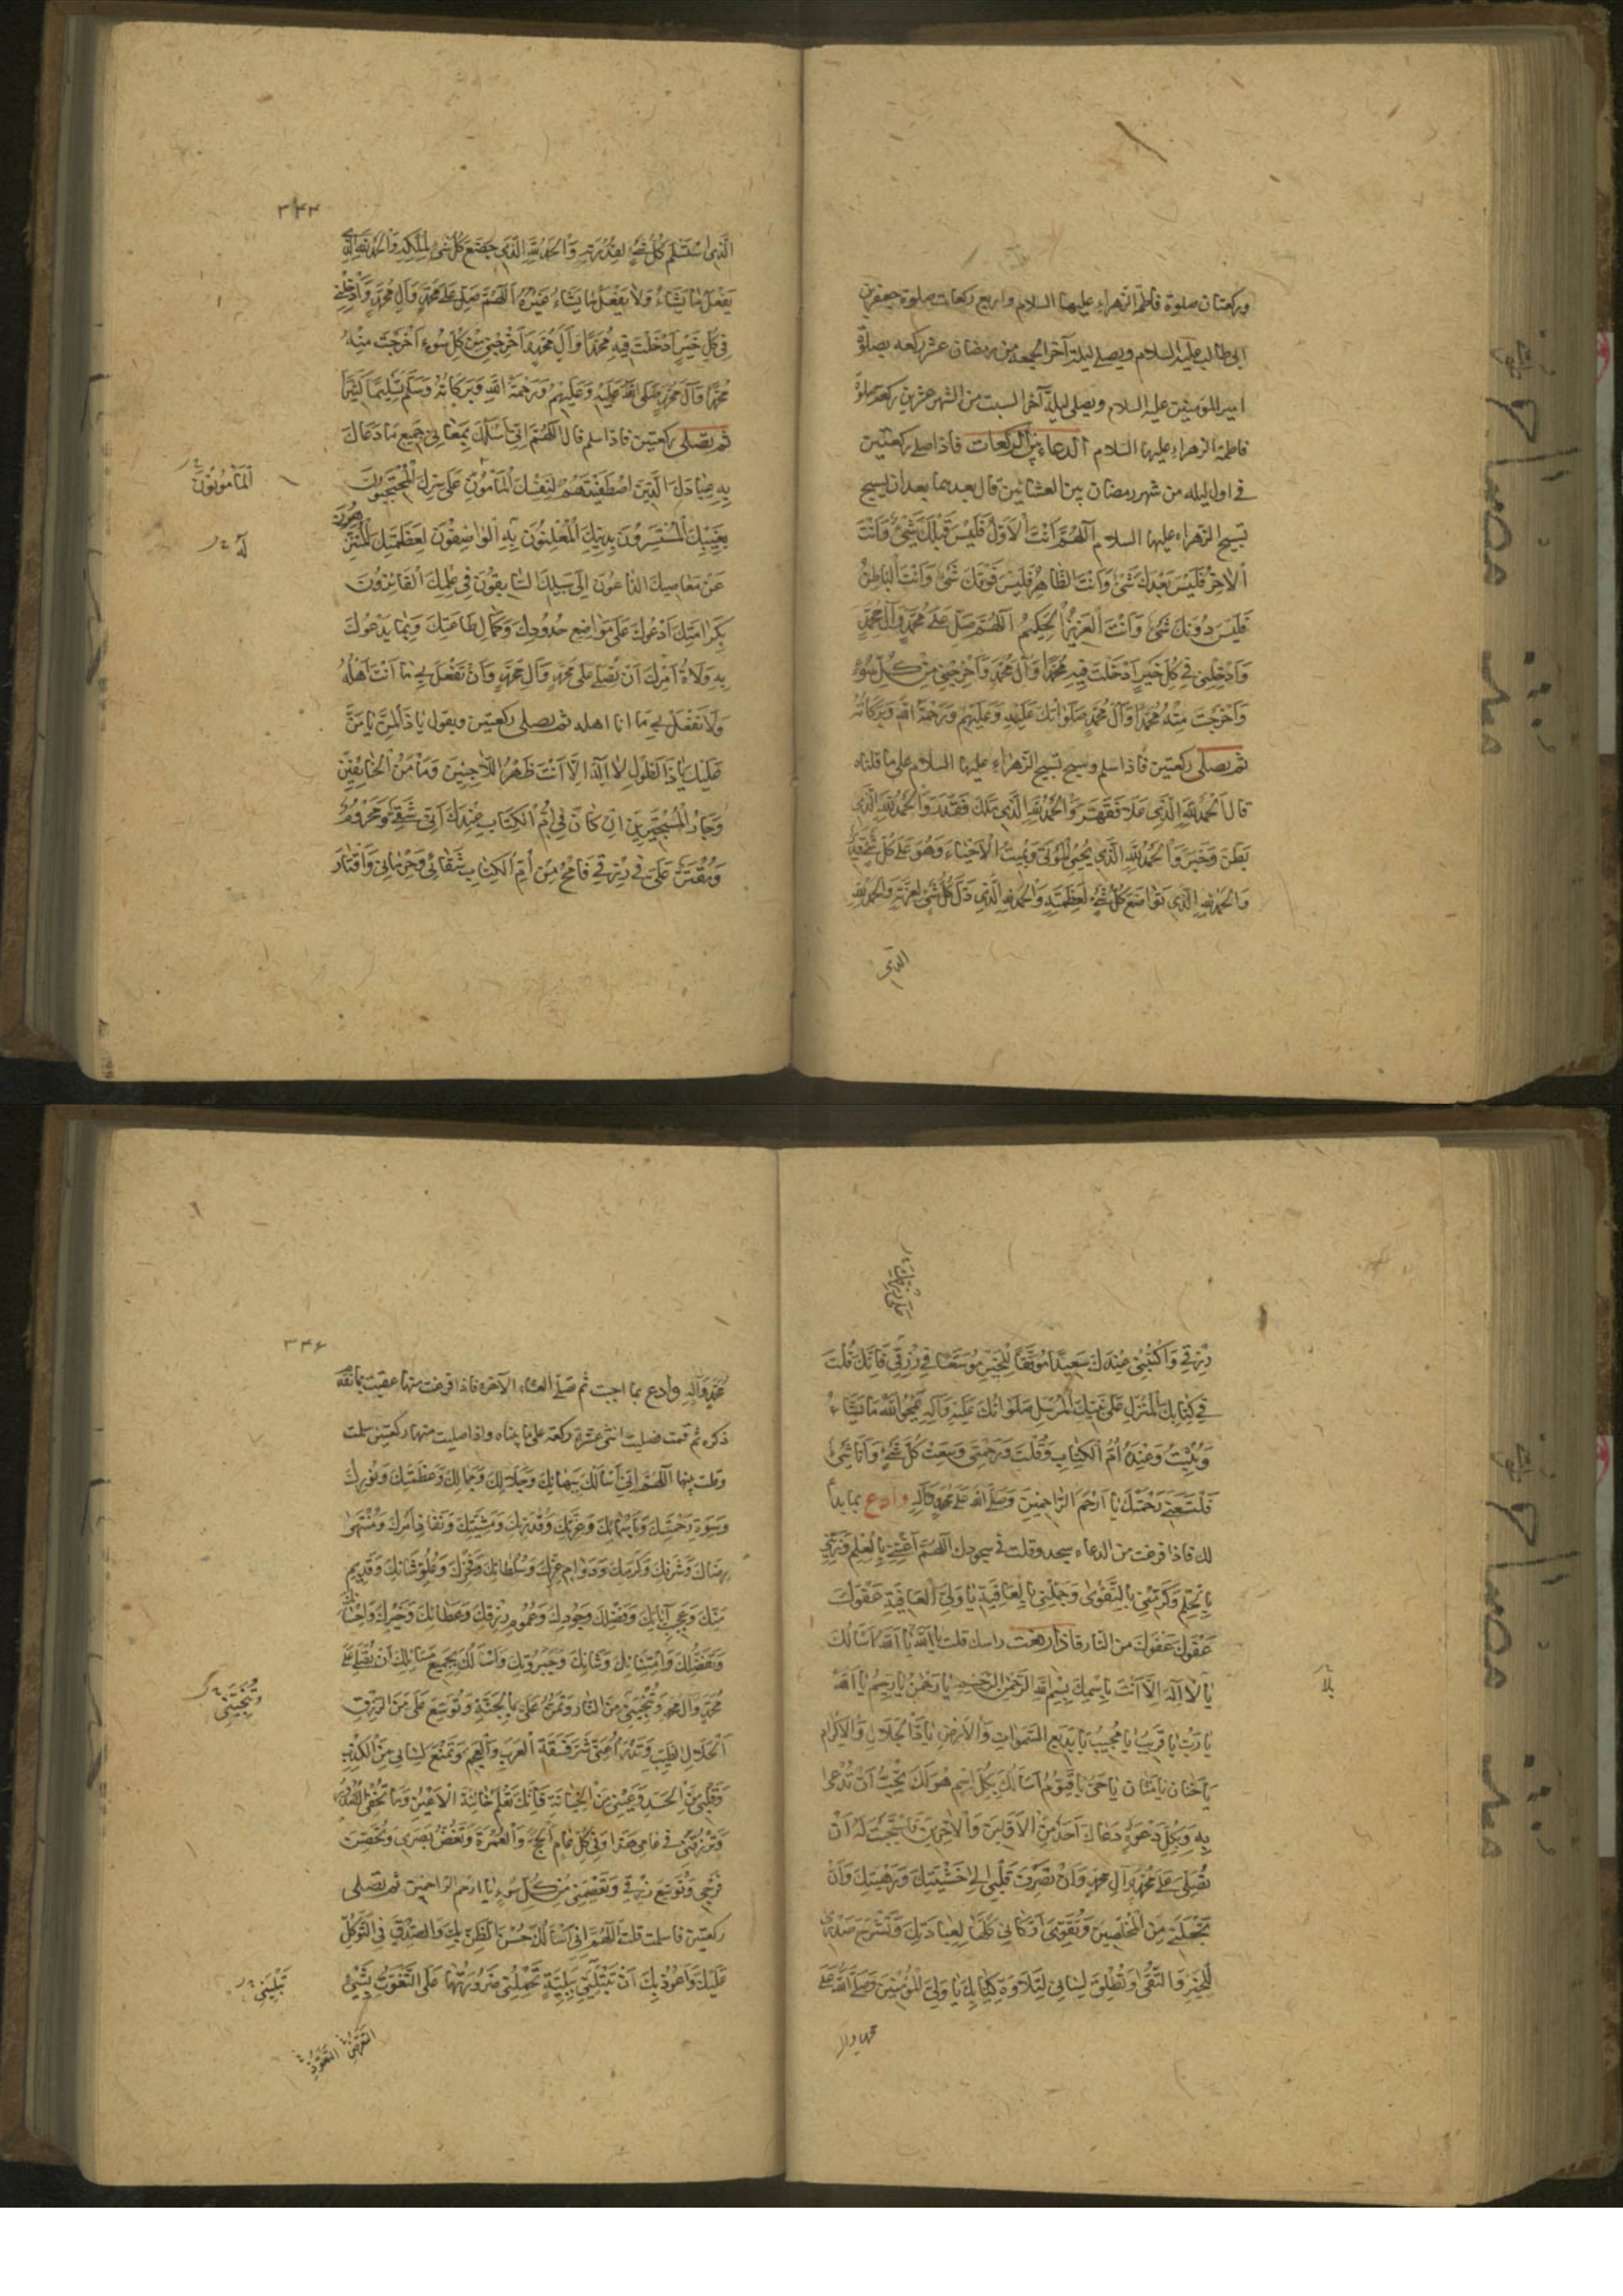 وركعتان صلوة فاطمة الزهراء عليها السلام واربع ركعات صلوة جعفر بن
ابى طالب عليه السلام ويصلى ليلة آخر الجمعة من رمضان عشر ركعه بصلوة
امير المؤمنين عليه السلام ويصلى ليلة آخر السبت من الشهر عشرين ركعة صلوة
فاطمة الزهراء عليها السلام الدعاء بين الركعات فاذا صلى ركعتين
فى اول ليله من شهر رمضان بين العشائين قال بعدهما بعد ان يسبح
تسبيح الزهراء عليها السلام اَللّهُمَّ اَنْتَ الْاَوَّلُ فَلَيْسَ قَبْلَكَ شَىْءٌ وَاَنْتَ
الْاخِرُ فَلَيْسَ بَعْدَكَ شَىْءٌ وَاَنْتَ الظّاهِرُ فَلَيْسَ فَوْقَكَ شَىْءٌ وَاَنْتَ الْباطِنُ
فَلَيْسَ دُونَكَ شَىْءٌ وَاَنْتَ الْعَزيزُ الْحَكيمُ اَللّهُمَّ صَلِّ عَلى مُحَمَّدٍ وَآلِ مُحَمَّدٍ
وَاَدْخِلْنى فى كُلِّ خَيْرٍ اَدْخَلْتَ فيهِ مُحَمَّدًا وَآلَ مُحَمَّدٍ وَاَخْرِجْنى مِنْ كُلِّ سُوءٍ
وَاَخْرَجْتَ مِنْهُ مُحَمَّدًا وَآلَ مُحَمَّدٍ صَلَواتُكَ عَلَيْهِ وَعَلَيْهِمْ وَرَحْمَةُ اللهِ وَبَرَكاتُهُ
ثم يصلى ركعتين فاذا سلم وسبح تسبيح الزهراء عليها السلام على ما قلناه
قال اَلْحَمْدُ لِلّهِ الَّذى عَلا فَقَهَرَ وَالْحَمْدُ لِلّهِ الَّذى مَلَكَ فَقَدَرَ وَالْحَمْدُ لِلّهِ الَّذى
بَطَنَ وَخَبَرَ وَالْحَمْدُ لِلّهِ الَّذى يُحْيِى الْمَوْتى وَيُميتُ الْاَحْياءَ وَهُوَ عَلى كُلِّ شَىْءٍ قَديرٌ
وَالْحَمْدُ لِلّهِ الَّذى تَواضَعَ كُلُّ شَىْءٍ لِعَظَمَتِهِ وَالْحَمْدُ لِلّهِ الَّذى ذَلَّ كُلُّ شَىْءٍ لِعِزَّتِهِ وَالْحَمْدُ لِلّهِ
الذى
اَلَّذِى اسْتَسْلَمَ كُلُّ شَىْءٍ لِقُدْرَتِهِ وَالْحَمْدُ لِلّهِ الَّذى خَضَعَ كُلُّ شَىْءٍ لِمُلْكِهِ وَالْحَمْدُ لِلّهِ الَّذى
يَفْعَلُ ما يَشاءُ وَلا يَفْعَلُ ما يَشاءُ غَيْرُهُ اَللّهُمَّ صَلِّ عَلى مُحَمَّدٍ وَآلِ مُحَمَّدٍ وَاَدْخِلْنى
فى كُلِّ خَيْرٍ اَدْخَلْتَ فيهِ مُحَمَّدًا وَآلَ مُحَمَّدٍ وَاَخْرِجْنى مِنْ كُلِّ سُوءٍ اَخْرَجْتَ مِنْهُ
مُحَمَّدًا وَآلَ مُحَمَّدٍ صَلَّى اللهُ عَلَيْهِ وَعَلَيْهِمْ وَرَحْمَةُ اللهِ وَبَرَكاتُهُ وَسَلَّمَ تَسْليمًا كَثيرًا
ثم يصلى ركعتين فاذا سلم قال اَللّهُمَّ اِنّى اَسْئَلُكَ بِمَعانى جَميعِ ما دَعاكَ
بِهِ عِبادُكَ الَّذينَ اصْطَفَيْتَهُمْ لِنَفْسِكَ الْمَأْمُونُ عَلى سِرِّكَ الْمُحْتَجِبُونَ
بِغَيْبِكَ الْمُسْتَسِرُّونَ بِدينِكَ الْمُعْلِنُونَ بِهِ الْواصِفُونَ لِعَظَمَتِكَ الْمُتَنَزِّهُونَ
عَنْ مَعاصيكَ الدّاعُونَ اِلى سَبيلِكَ السّابِقُونَ فى عِلْمِكَ الْفائِزُونَ
بِكَرامَتِكَ اَدْعُوكَ عَلى مَواضِعِ حُدُودِكَ وَكَمالِ طاعَتِكَ وَبِما يَدْعُوكَ
بِهِ وُلاةُ اَمْرِكَ اَنْ تُصَلِّىَ عَلى مُحَمَّدٍ وَآلِ مُحَمَّدٍ وَاَنْ تَفْعَلَ بى ما اَنْتَ اَهْلُهُ
وَلا تَفْعَلْ بى ما انا اهله ثم يصلى ركعتين ويقول يا ذَا الْمَنِّ يا مَنَّ
عَلَيْكَ يا ذَا الطَّوْلِ لا اِلهَ اِلّا اَنْتَ ظَهْرُ اللّاجينَ وَمَأْمَنُ الْخائِفينَ
وَجارُ الْمُسْتَجيرينَ اِنْ كانَ فى اُمِّ الْكِتابِ عِنْدَكَ اَنّى شَقِىٌّ وَمَحْرُومٌ
وَمُقْتَرٌ عَلَىَّ فى رِزْقى فَامْحُ مِنْ اُمِّ الْكِتابِ شَقائى وَحِرْمانى وَاِقْتارَ
اَلْمَأْمُونُونَ
لَهُ
٣٤٣
رِزْقى وَاكْتُبْنى عِنْدَكَ سَعيدًا مُوَفَّقًا لِلْخَيْرِ مُوَسَّعًا فى رِزْقى فَاِنَّكَ قُلْتَ
فى كِتابِكَ الْمُنْزَلِ عَلى نَبِيِّكَ الْمُرْسَلِ صَلَواتُكَ عَلَيْهِ وَآلِهِ يَمْحُوا اللهُ ما يَشاءُ
وَيُثْبِتُ وَعِنْدَهُ اُمُّ الْكِتابِ وَقُلْتَ وَرَحْمَتى وَسِعَتْ كُلَّ شَىْءٍ وَاَنَا شَىْءٌ
فَلْتَسَعْنى رَحْمَتُكَ يا اَرْحَمَ الرّاحِمينَ وَصَلَّى اللهُ عَلى مُحَمَّدٍ وَآلِهِ وادع بما بدا
لك فاذا فرغت من الدعاء سجد وقلت فى سجودك اَللّهُمَّ اَغْنِنى بِالْعِلْمِ وَزَيِّنّى
بِالْحِلْمِ وَكَرِّمْنى بِالتَّقْوى وَجَمِّلْنى بِالْعافِيَةِ يا وَلِىَّ الْعافِيَةِ عَفْوَكَ
عَفْوَكَ عَفْوَكَ مِنَ النّارِ فاذا رفعت راسك قلت يا اَللهُ يا اَللهُ اَسْاَلُكَ
يا لا اِلهَ اِلّا اَنْتَ بِاسْمِكَ بِسْمِ اللهِ الرَّحْمنِ الرَّحيمِ يا رَحْمنُ يا رَحيمُ يا اَللهُ
يا رَبِّ يا قَريبُ يا مُجيبُ يا بَديعَ السَّمواتِ وَالْاَرْضِ يا ذَا الْجَلالِ وَالْاِكْرامِ
يا حَنّانُ يا مَنّانُ يا حَىُّ يا قَيُّومُ اَسْاَلُكَ بِكُلِّ اسْمٍ هُوَ لَكَ تُحِبُّ اَنْ تُدْعى
بِهِ وَبِكُلِّ دَعْوَةٍ دَعاكَ اَحَدٌ مِنَ الْاَوَّلينَ وَالْاخِرينَ فَاسْتَجَبْتَ لَهُ اَنْ
تُصَلِّىَ عَلى مُحَمَّدٍ وَآلِ مُحَمَّدٍ وَاَنْ تَصْرِفَ قَلْبى اِلى خَشْيَتِكَ وَرَهْبَتِكَ وَاَنْ
تَجْعَلَنى مِنَ الْمُخْلَصينَ وَتُقَوِّىَ اَرْكانى كُلَّها لِعِبادَتِكَ وَتَشْرَحَ صَدْرى
لِلْخَيْرِ وَالتُّقى وَتُطْلِقَ لِسانى لِتِلاوَةِ كِتابِكَ يا وَلِىَّ الْمُؤْمِنينَ وَصَلَّى اللهُ عَلى
محمد وآله
٣٤٤
مُحَمَّدٍ وَآلِهِ وادع بما احببت ثم صلّ العشاء الآخره فاذا فرغت منها عقبت بما تقدم
ذكره ثم قمت فصليت اثنتى عشرة ركعة على ما بيناه واذا صليت منها ركعتين سلمت
وقلت بينها اَللّهُمَّ اِنّى اَسْاَلُكَ بِبَهائِكَ وَجَلالِكَ وَجَمالِكَ وَعَظَمَتِكَ وَنُورِكَ
وَسَعَةِ رَحْمَتِكَ وَبِاَسْمائِكَ وَعِزَّتِكَ وَقُدْرَتِكَ وَمَشِيَّتِكَ وَنَفاذِ اَمْرِكَ وَمُنْتَهى
رِضاكَ وَشَرَفِكَ وَكَرَمِكَ وَدَوامِ عِزِّكَ وَسُلْطانِكَ وَفَخْرِكَ وَعُلُوِّ شَانِكَ وَقَديمِ
مَنِّكَ وَعَجيبِ آياتِكَ وَفَضْلِكَ وَجُودِكَ وَعُمُومِ رِزْقِكَ وَعَطائِكَ وَخَيْرِكَ وَاِحْسانِكَ
وَتَفَضُّلِكَ وَامْتِنانِكَ وَشَانِكَ وَجَبَرُوتِكَ وَاَسْاَلُكَ بِجَميعِ مَسائِلِكَ اَنْ تُصَلِّىَ عَلى
مُحَمَّدٍ وَآلِ مُحَمَّدٍ وَتُنْجِيَنى مِنَ النّارِ وَتَمُنَّ عَلَىَّ بِالْجَنَّةِ وَتُوَسِّعَ عَلَىَّ مِنَ الرِّزْقِ
الْحَلالِ الطَّيِّبِ وَتَدْرَأَ عَنّى شَرَّ فَسَقَةِ الْعَرَبِ وَالْعَجَمِ وَتَمْنَعَ لِسانى مِنَ الْكِذْبِ
وَقَلْبى مِنَ الْحَسَدِ وَعَيْنى مِنَ الْخِيانَةِ فَاِنَّكَ تَعْلَمُ خائِنَةَ الْاَعْيُنِ وَما تُخْفِى الصُّدُورُ
وَتَرْزُقَنى فى عامى هذا وَفى كُلِّ عامٍ اَلْحَجَّ وَالْعُمْرَةَ وَتَغُضَّ بَصَرى وَتُحَصِّنَ
فَرْجى وَتُوَسِّعَ رِزْقى وَتَعْصِمَنى مِنْ كُلِّ سُوءٍ يا ارحم الراحمين ثم تصلى
ركعتين فاسلمت قلت اَللّهُمَّ اِنّى اَسْاَلُكَ حُسْنَ الظَّنِّ بِكَ وَالصِّدْقَ فِى التَّوَكُّلِ
عَلَيْكَ وَاَعُوذُ بِكَ اَنْ تَبْتَلِيَنى بِبَلِيَّةٍ تَحْمِلُنى ضَرُورَتُها عَلَى التَّغَوُّثِ بِشَىْءٍ
وَتُنَجِّيَنى
تَبْلِيَنى